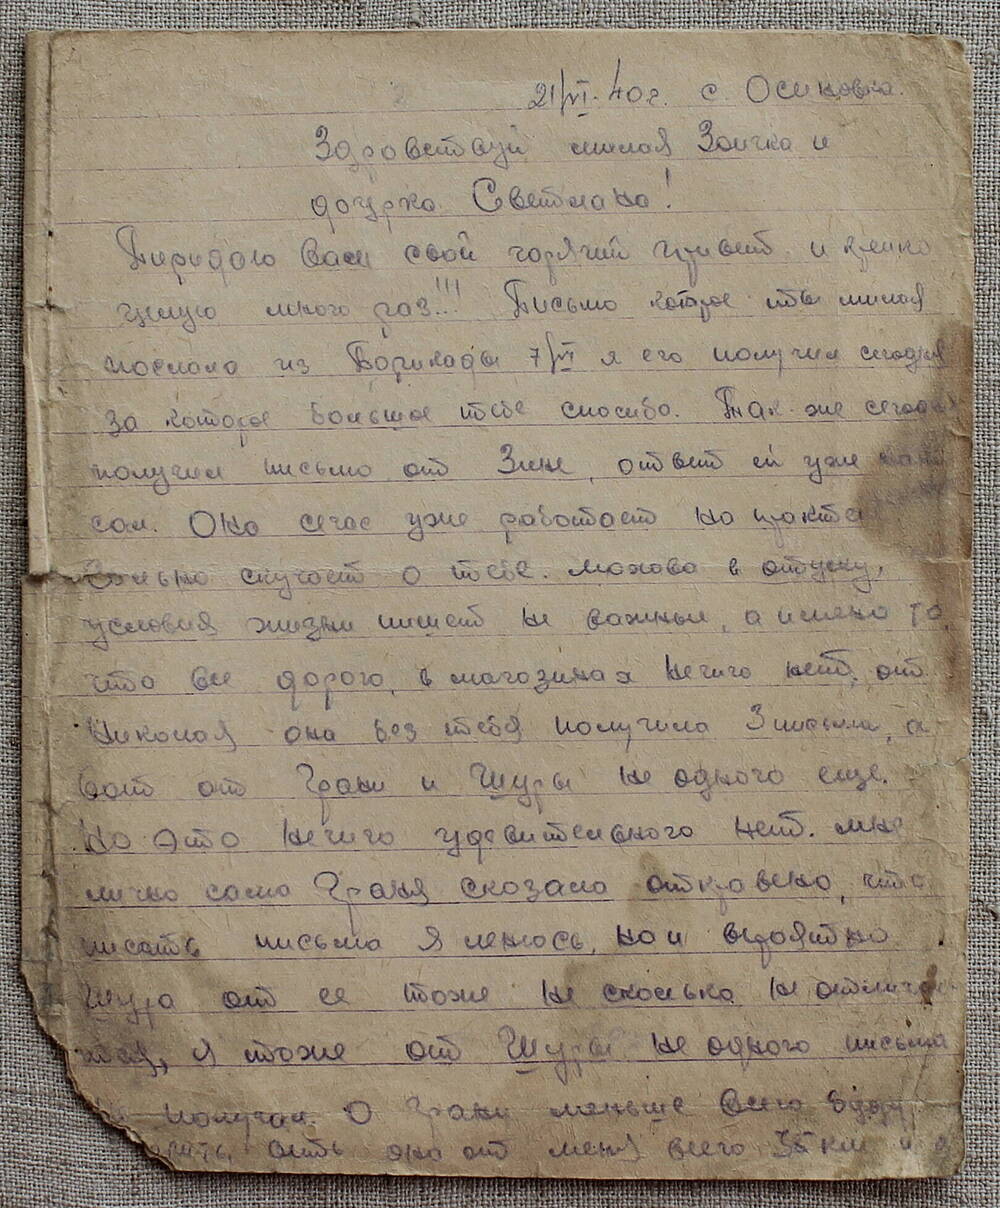 21/VI. 40 г. с. Осиковка.
Здравствуй милая Заичка и
доурка Светлана!
Пиридаю Вам свой горячий привет и крепко
цилую много раз!!! Письмо которое ты милая
послала из Борикады 7/VI я его получил сегодня
за которое большое тебе спосибо. Так же сегодня
получил письмо от Зины, ответ ей уже
сал. Она сечас уже работает на практи
скучает о тебе. в отпуску,
условия жизни пишет не важные, а имено то,
что все дорого, в магозинах ничиго нет, от
Николая она без тебя получила 3 письма, а
вот от Грани и Шуры не одного еще.
Но это ничиго удевительного нет. мне
лично сама Граня сказала откравено, что
писать письма я ленюсь, но и вероятно
Шура от ее тоже не сколько не отличае
тся, я тоже от Шуры не одного письма
получал. О Грани меньше всего буду
ведь она от меня всего 35 км и